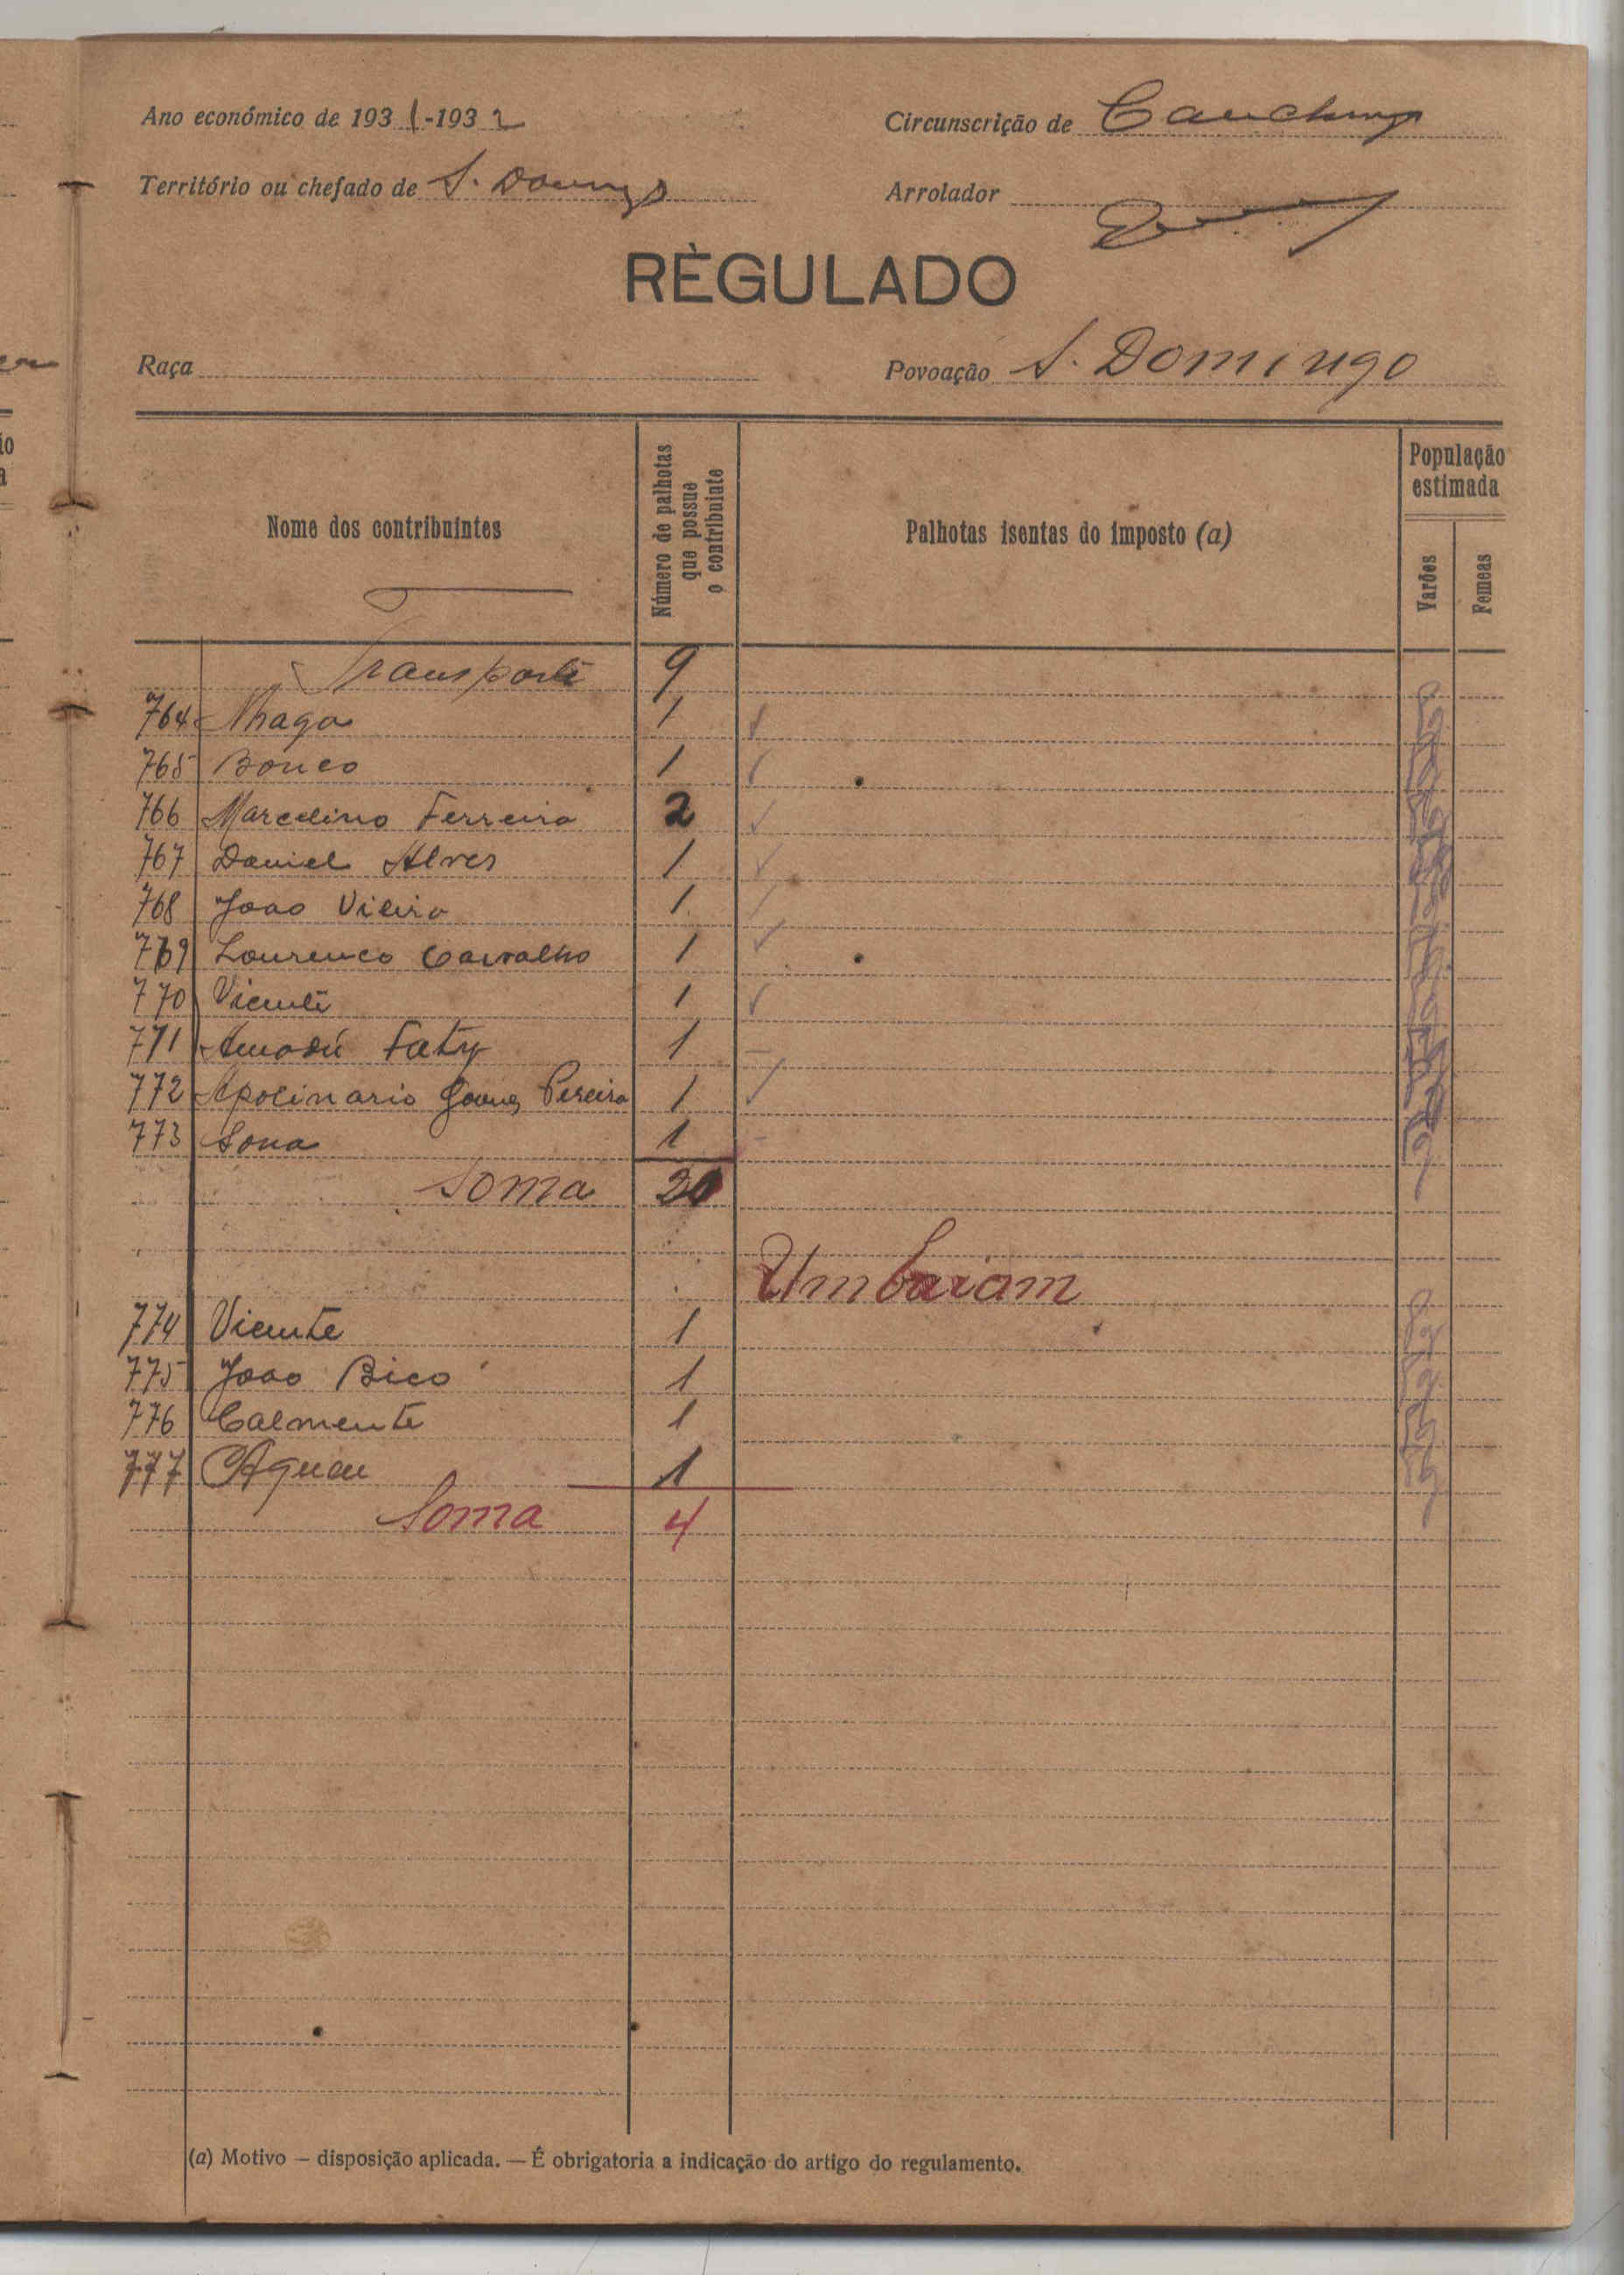 Ano económico de 1931-1932
Circunscrição de
Território ou chefado de S. Domingo
Arrolador
RÈGULADO
Raça
Povoação S. Domingo
Nome dos contribuintes
Número de palhotas que possue o contribuinte
Palhotas isentas do imposto (a)
População estimada
Varões
Femeas
Transporte 9
764 Thago 1
765 Bonco 1
766 Marcelino Ferreira 2
767 Daniel Alves 1
768 Joao Vieira 1
769 Lourenco Carvalho 1
770 Vicente 1
771 Amadú Faty 1
772 Apolinario Gomes Pereira 1
773 Sona 1
Soma 20
Umbaiam
774 Vicente 1
775 Joao Bico 1
776 Calmente 1
777 Agueu 1
Soma 4
(a) Motivo — disposição aplicada. — É obrigatoria a indicação do artigo do regulamento.